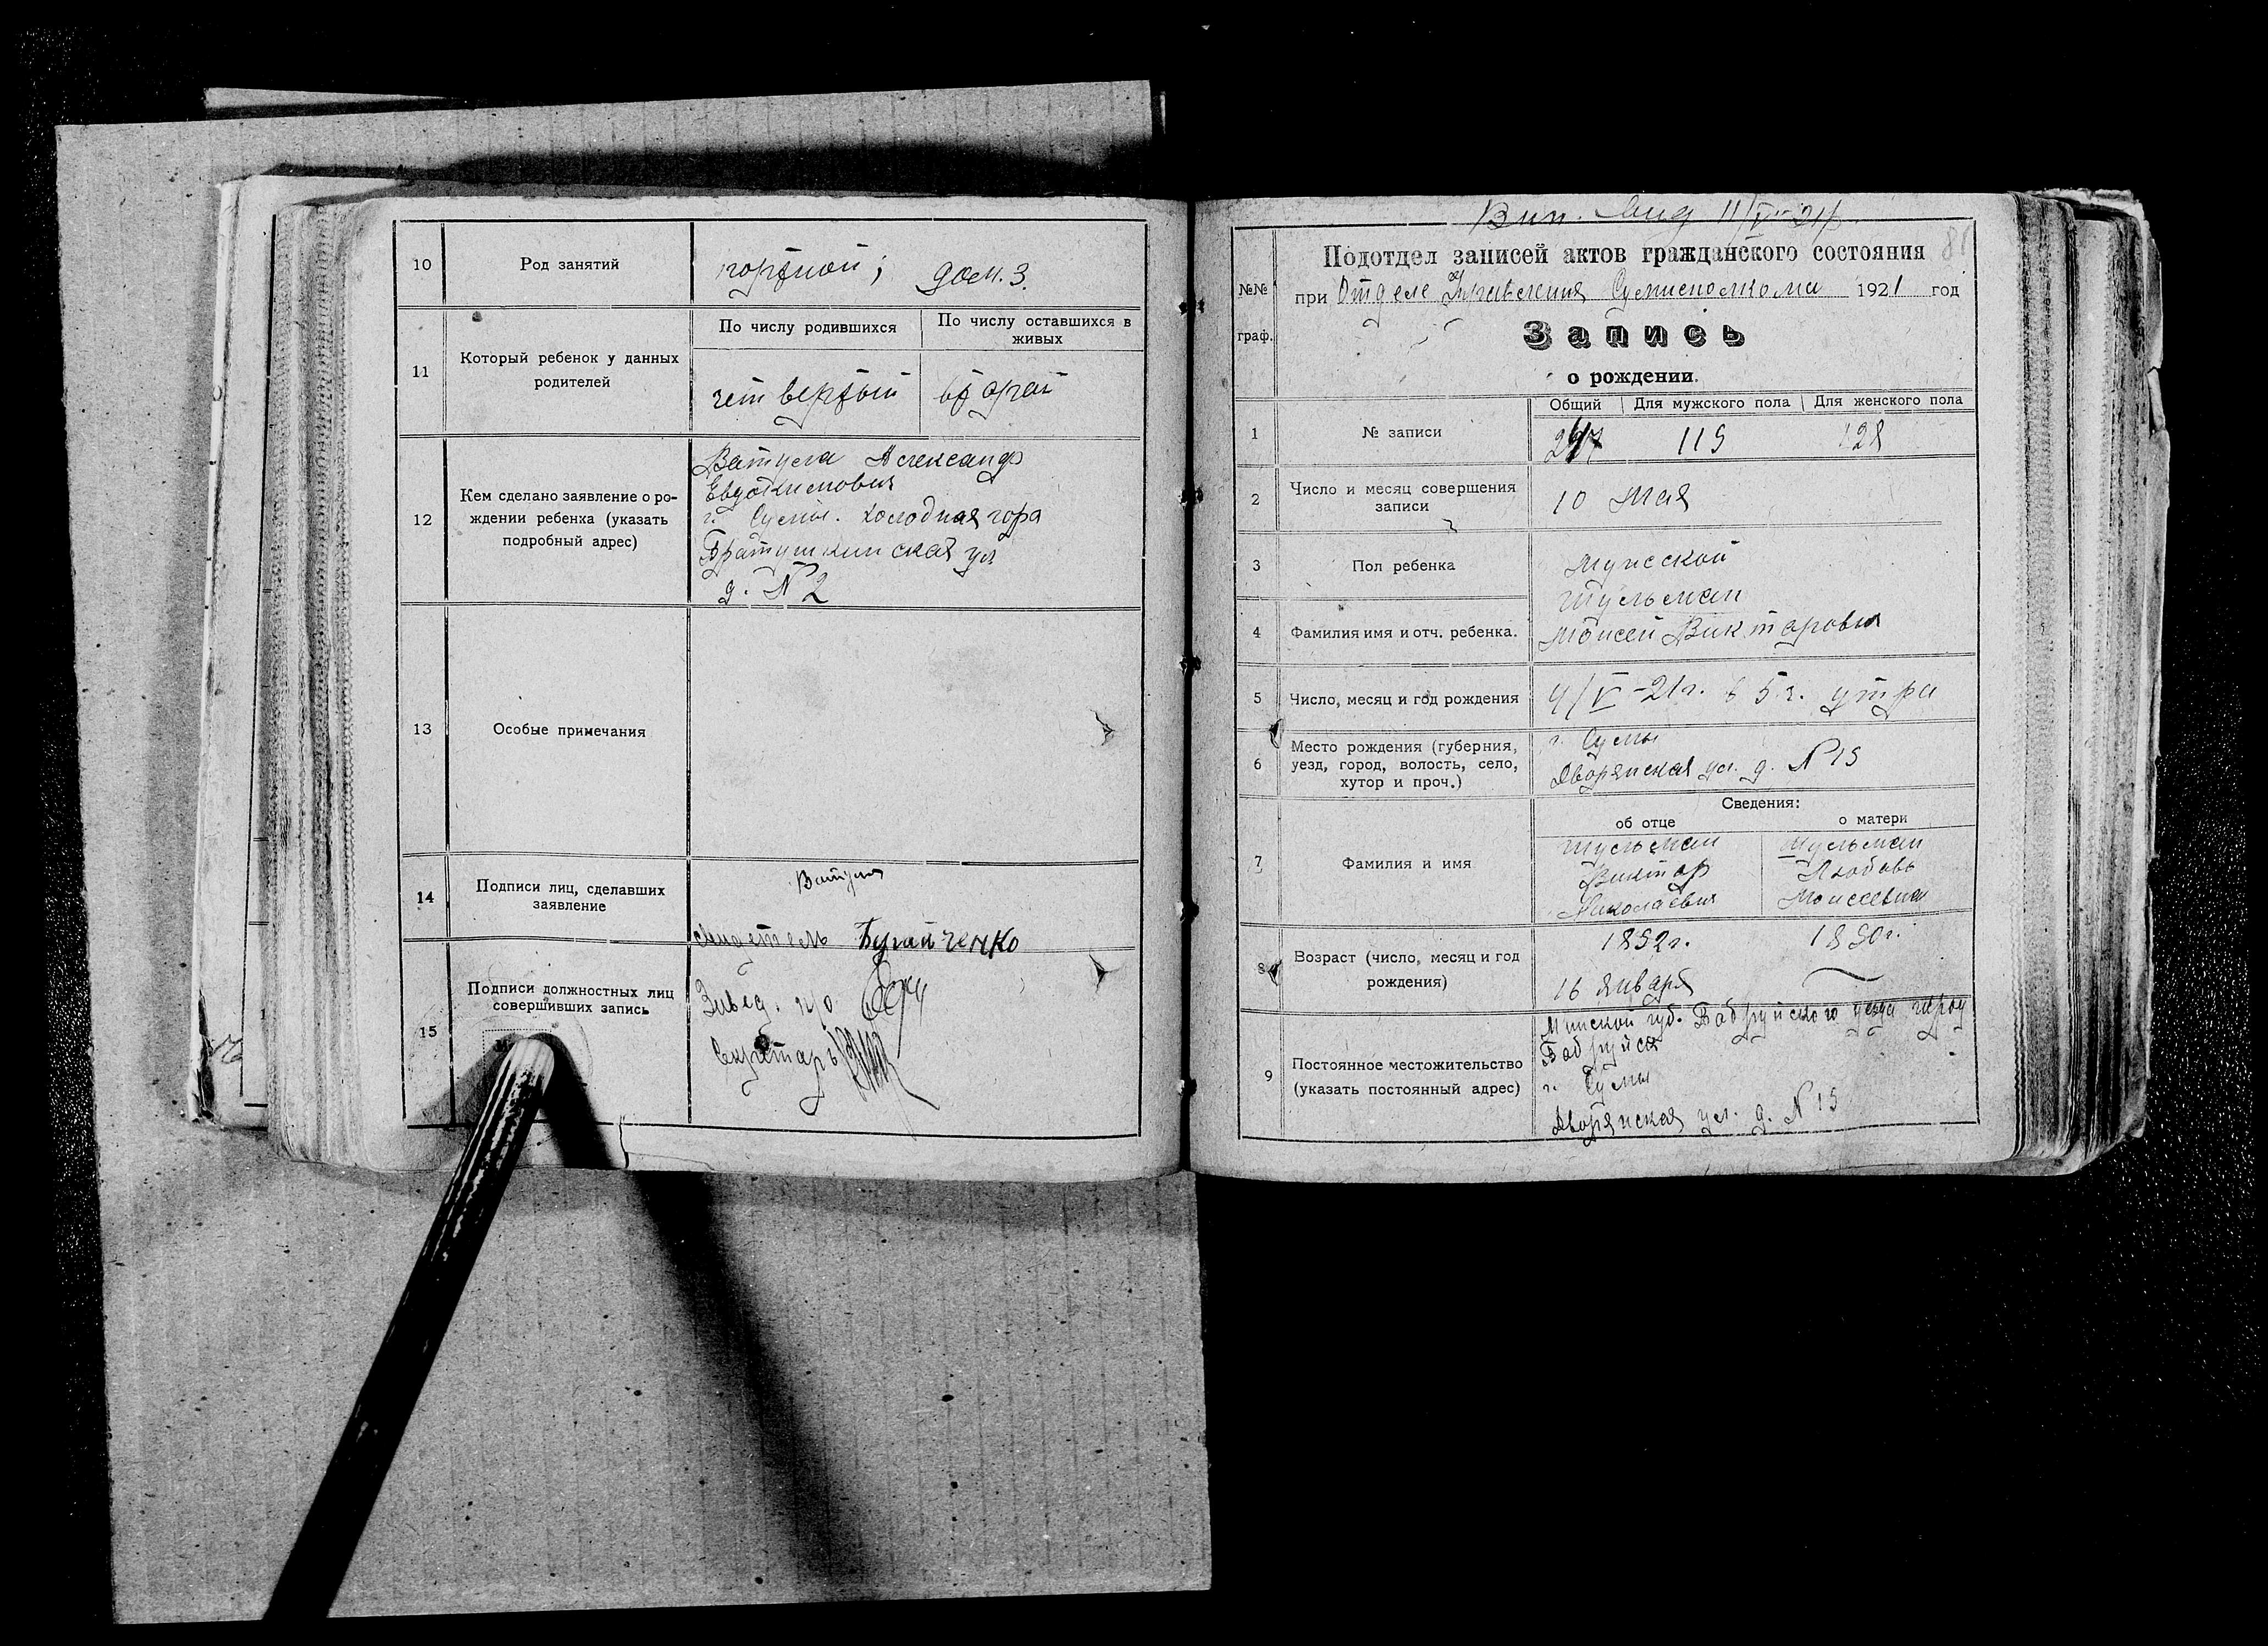 10
Род занятий
портной; дом. З.
11
Который ребенок у данных
родителей
По числу родившихся
По числу оставшихся в
живых
четвертый
второй
12
Кем сделано заявление о ро-
ждении ребенка (указать
подробный адрес)
Ватула Александр
Евдокимович
г. Сумы. Холодная гора
Братушкинская ул
д. № 2
13
Особые примечания
14
Подписи лиц, сделавших
заявление
Ватула
Бугайченко
15
Подписи должностных лиц
совершивших запись
Завед. п/о
Секретарь
Вип. 11/V-21р.
81
№№
граф.
Подотдел записей актов гражданского состояния
при Отделе Управления Сумисполкома 1921 год
Запись
о рождении.
Общий
Для мужского пола
Для женского пола
1
№ записи
247
119
128
2
Число и месяц совершения
записи
10 Мая
3
Пол ребенка
Мужской
4
Фамилия имя и отч. ребенка.
Шульман
Моисей Викторович
5
Число, месяц и год рождения
4/V-21г. в 5 ч. утра
6
Место рождения (губерния,
уезд, город, волость, село,
хутор и проч.)
г. Сумы
Дворянская ул. д. № 15
Сведения:
об отце
о матери
7
Фамилия и имя
Шульман
Виктор
Николаевич
Шульман
Любовь
Моисеевна
8
Возраст (число, месяц и год
рождения)
1892г.
16 января
1890г.
9
Постоянное местожительство
(указать постоянный адрес)
Минской губ. Бобруйского уезда город
Бобруйск
г. Сумы
Дворянская ул. д. № 15